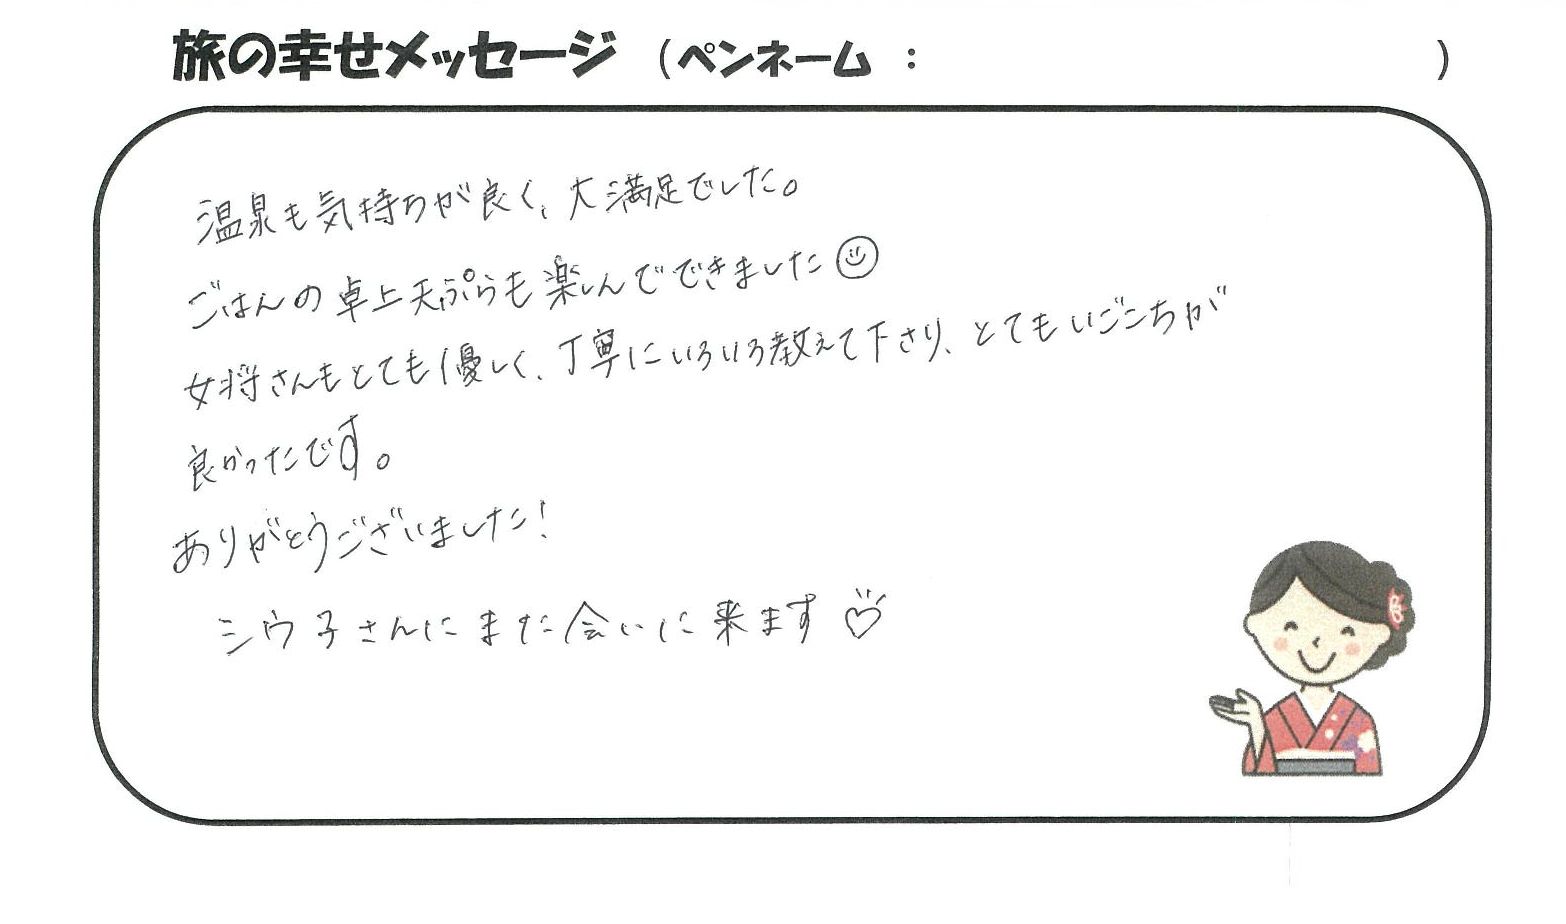 旅の幸せメッセージ （ペンネーム ： ）
温泉も気持ちが良く、大満足でした。
ごはんの卓上天ぷらも楽しんでできました☺
女将さんもとても優しく、丁寧にいろいろ教えて下さり、とてもいごこちが
良かったです。
ありがとうございました！
シウ子さんにまた会いに来ます♡